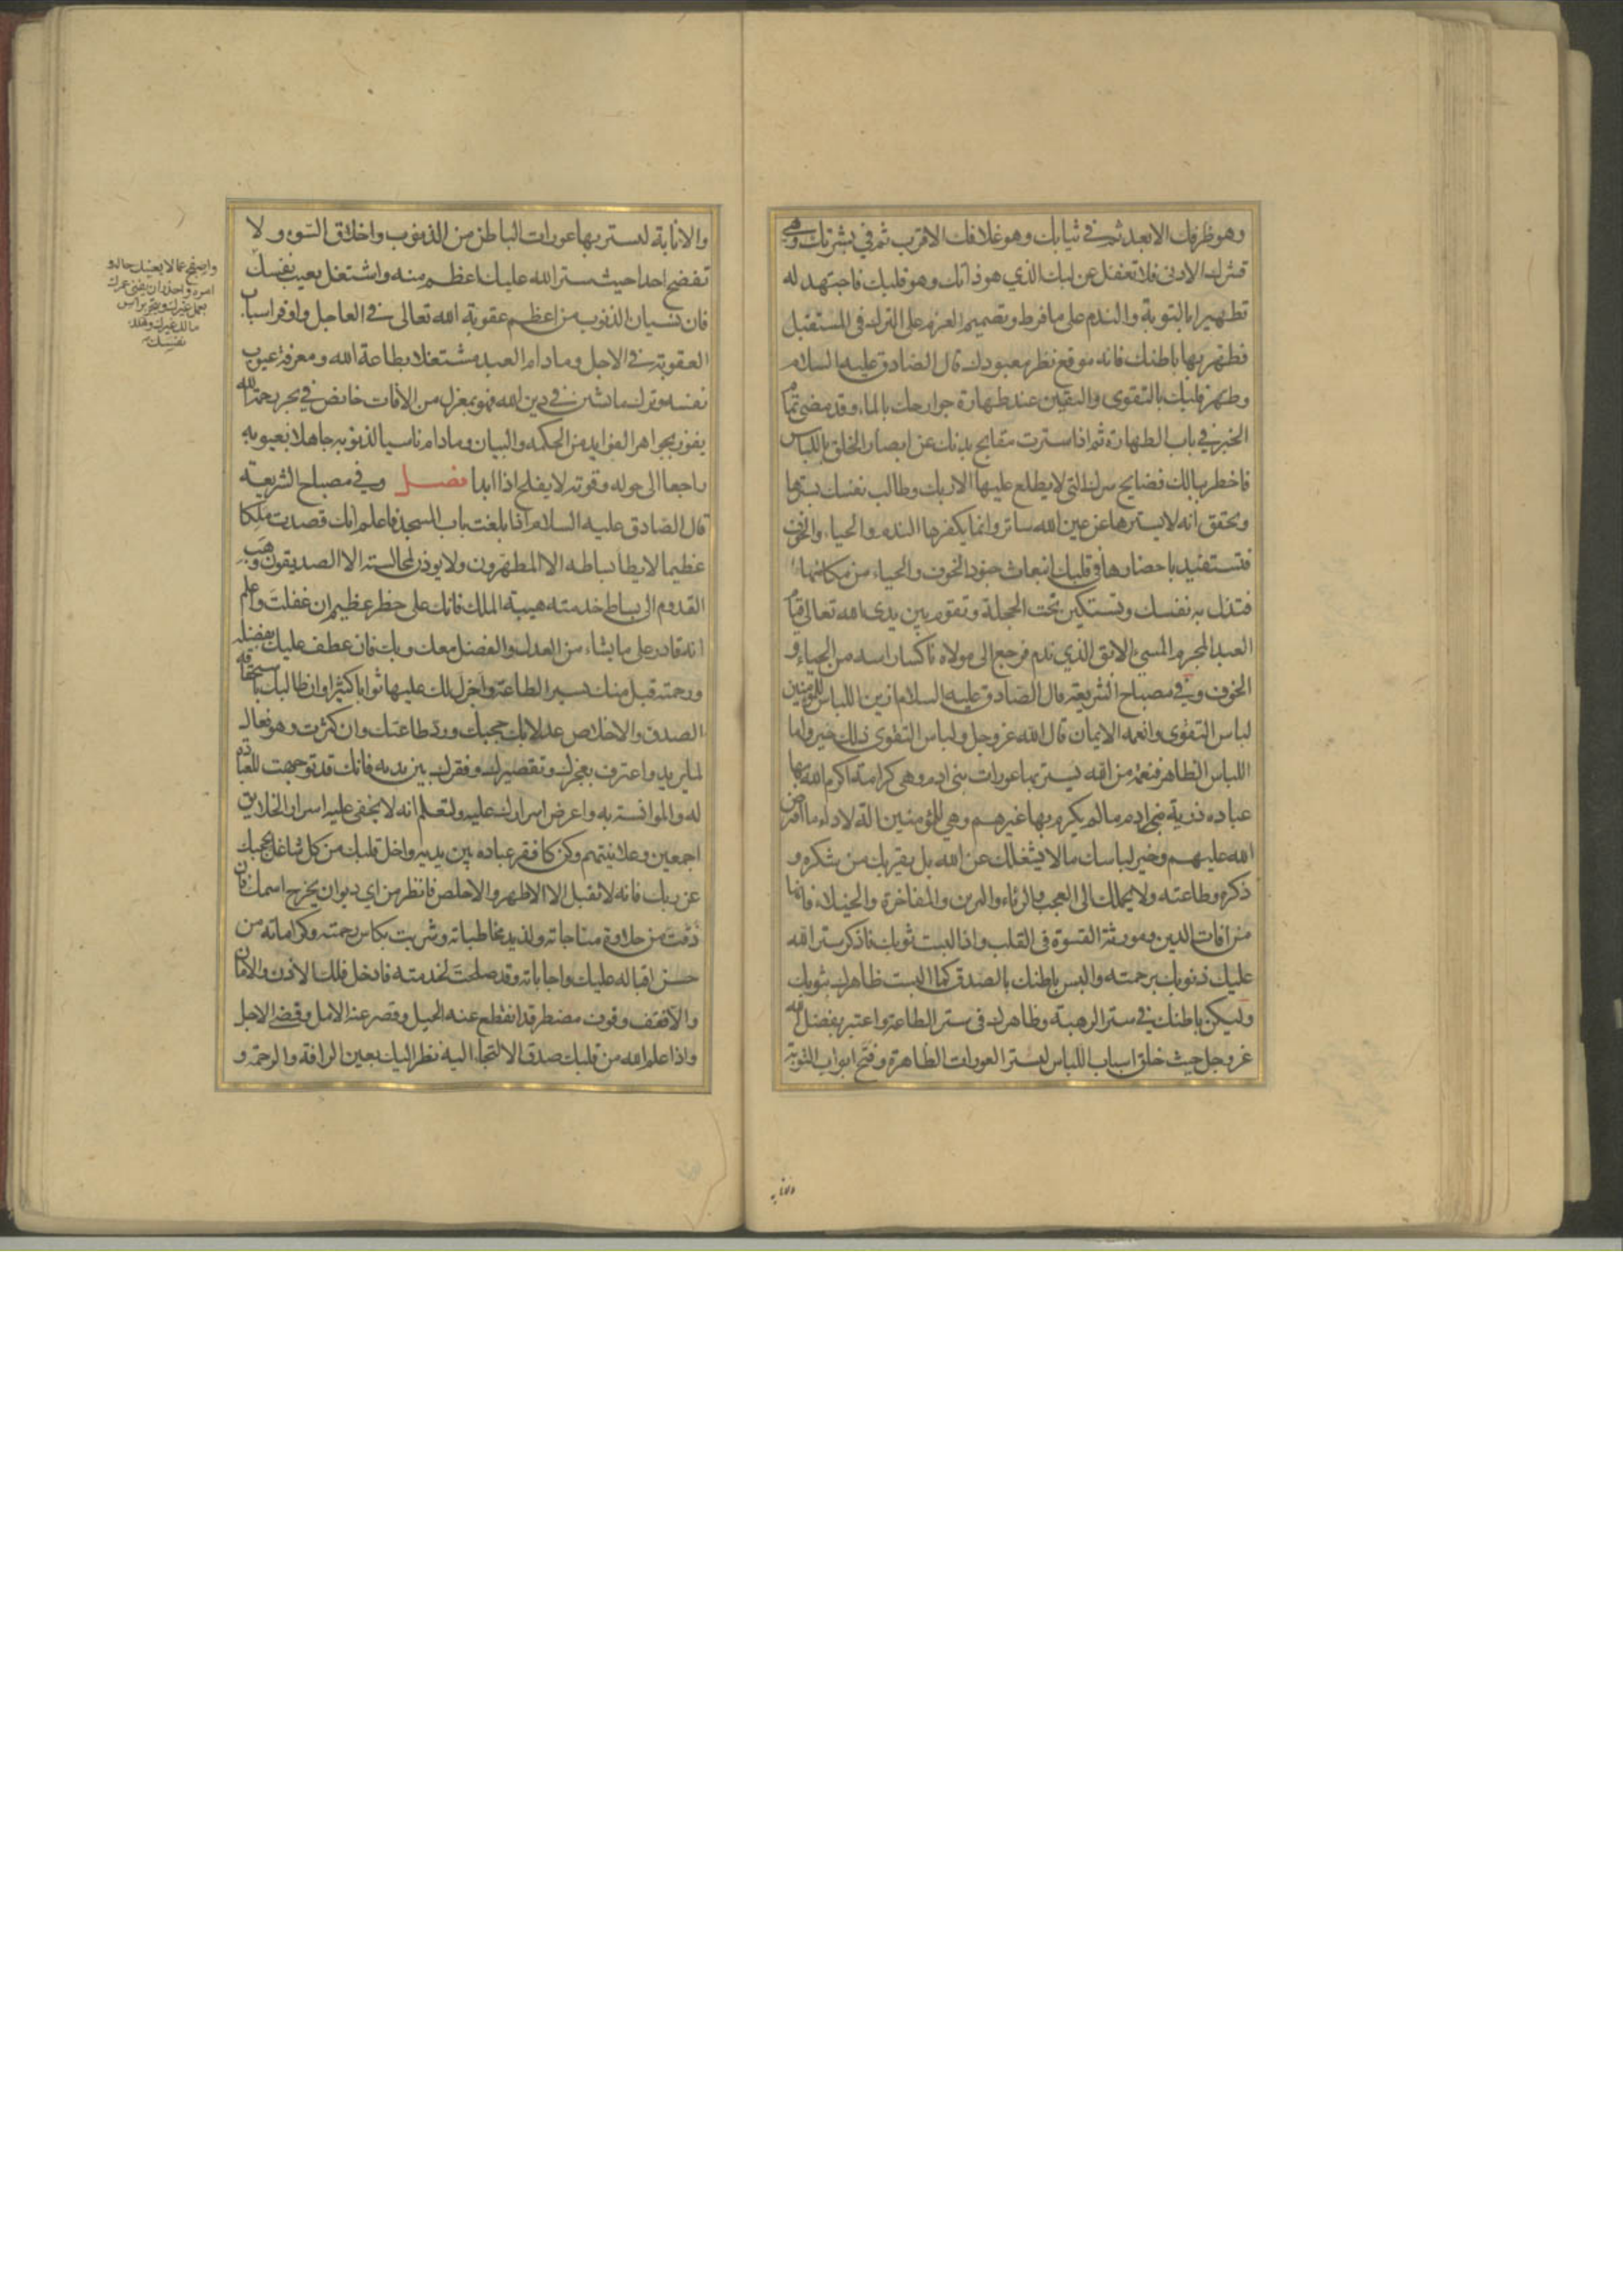 وهو ظرفك الابعد ثم في ثيابك وهو غلافك الاقرب ثم في بشرتك وهي
قشرك الادنى فلا تغفل عن لبك الذي هو ذاتك وهو قلبك فاجتهد له
تطهيرا بالتوبة والندم على ما فرط وتصميم العزم على الترك في المستقبل
فطهر بها باطنك فانه موقع نظر معبودك قال الصادق عليه السلام
وطهر قلبك بالتقوى واليقين عند طهارة جوارحك بالماء وقد مضى تمام
الخبر في باب الطهارة ثم اذا سترت مقابح بدنك عن ابصار الخلق باللباس
فاخطر ببالك فضايح سرك التي لا يطلع عليها الا ربك وطالب نفسك بسترها
وتحقق انه لا يسترها عن عين الله ساتر وانما يكفرها الندم والحياء والخوف
فتستفيد باحضارها في قلبك انبعاث جنود الخوف والحياء من مكامنها
فتذل به نفسك وتستكين تحت الخجلة وتقوم بين يدي الله تعالى قيام
العبد المجرم المسئ الابق الذي ندم فرجع الى مولاه ناكسا راسه من الحياء و
الخوف وفي مصباح الشريعة قال الصادق عليه السلام ازين اللباس للمؤمنين
لباس التقوى وانعمه الايمان قال الله عز وجل ولباس التقوى ذلك خير واما
اللباس الظاهر فنعمة من الله يستر بها عورات بني ادم وهي كرامة اكرم الله بها
عباده ذرية بني ادم ما لم يكرم بها غيرهم وهي للمؤمنين الة لاداء ما افترض
الله عليهم وخير لباسك ما لا يشغلك عن الله بل يقربك من شكره و
ذكره وطاعته ولا يحملك الى العجب والرئاء والتزين والمفاخرة والخيلاء فانها
من افات الدين ومورثة القسوة في القلب واذا لبست ثوبك فاذكر ستر الله
عليك ذنوبك برحمته والبس باطنك بالصدق كما البست ظاهرك بثوبك
وليكن باطنك في ستر الرهبة وظاهرك في ستر الطاعة واعتبر بفضل الله
عز وجل حيث خلق اسباب اللباس لستر العورات الظاهرة وفتح ابواب التوبة
والانابة
والانابة لستر بها عورات الباطن من الذنوب واخلاق السوء ولا
تفضح احدا حيث ستر الله عليك اعظم منه واشتغل بعيب نفسك
واصفح عما لا يعنيك حاله و
امره واحذر ان يفنى عمرك
بعمل غيرك ويتجر براس
مالك غيرك وتهلك
نفسك
فان نسيان الذنوب من اعظم عقوبة الله تعالى في العاجل واوفر اسباب
العقوبة في الاجل وما دام العبد مشتغلا بطاعة الله ومعرفة عيوب
نفسه وترك ما يشين في دين الله فهو بمعزل من الافات خائض في بحر رحمة الله
يفوز بجواهر الفوايد من الحكمه والبيان وما دام ناسيا لذنوبه جاهلا بعيوبه
راجعا الى حوله وقوته لا يفلح اذا ابدا فصل وفي مصباح الشريعة
قال الصادق عليه السلام اذا بلغت باب المسجد فاعلم انك قصدت ملكا
عظيما لا يطا بساطه الا المطهرون ولا يوذن لمجالسته الا الصديقون وهب
القدوم الى بساط خدمته هيبة الملك فانك على خطر عظيم ان غفلت واعلم
انه قادر على ما يشاء من العدل والفضل معك وبك فان عطف عليك بفضله
ورحمته قبل منك يسير الطاعة واجزل لك عليها ثوابا كثيرا وان طالبك باستحقاقه
الصدق والاخلاص عدلا بك حجبك ورد طاعتك وان كثرت وهو فعال
لما يريد واعترف بعجزك وتقصيرك وفقرك بين يديه فانك قد توجهت للعبادة
له والموانسة به واعرض اسرارك عليه ولتعلم انه لا يخفى عليه اسرار الخلايق
اجمعين وعلانيتهم وكن كافقر عباده بين يديه واخل قلبك من كل شاغل يحجبك
عن ربك فانه لا يقبل الا الاطهر والاخلص فانظر من اي ديوان يخرج اسمك فان
ذقت من حلاوة مناجاته ولذيذ مخاطباته وشربت بكاس رحمته وكراماته من
حسن اقباله عليك واجاباته وقد صلحت لخدمته فادخل فلك الاذن والامان
والا فقف وقوف مضطر قد انقطع عنه الحيل وقصر عنه الامل وقضي الاجل
واذا علم الله من قلبك صدق الالتجاء اليه نظر اليك بعين الرافة والرحمة و